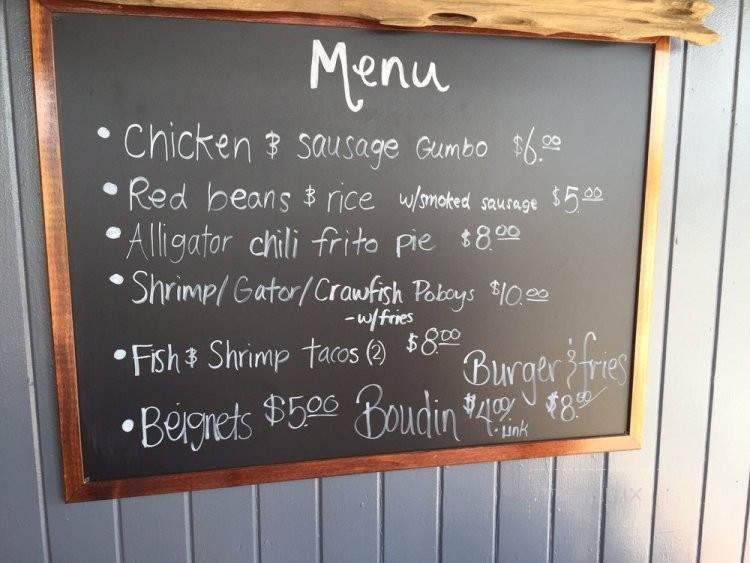 Menu
• Chicken & sausage Gumbo $6.00
• Red beans & rice w/smoked sausage $5.00
• Alligator chili frito pie $8.00
• Shrimp/Gator/Crawfish Poboys $10.00
- w/fries
• Fish & Shrimp tacos (2) $8.00
Burger & fries
$8.00
• Beignets $5.00 Boudin $4.00/link